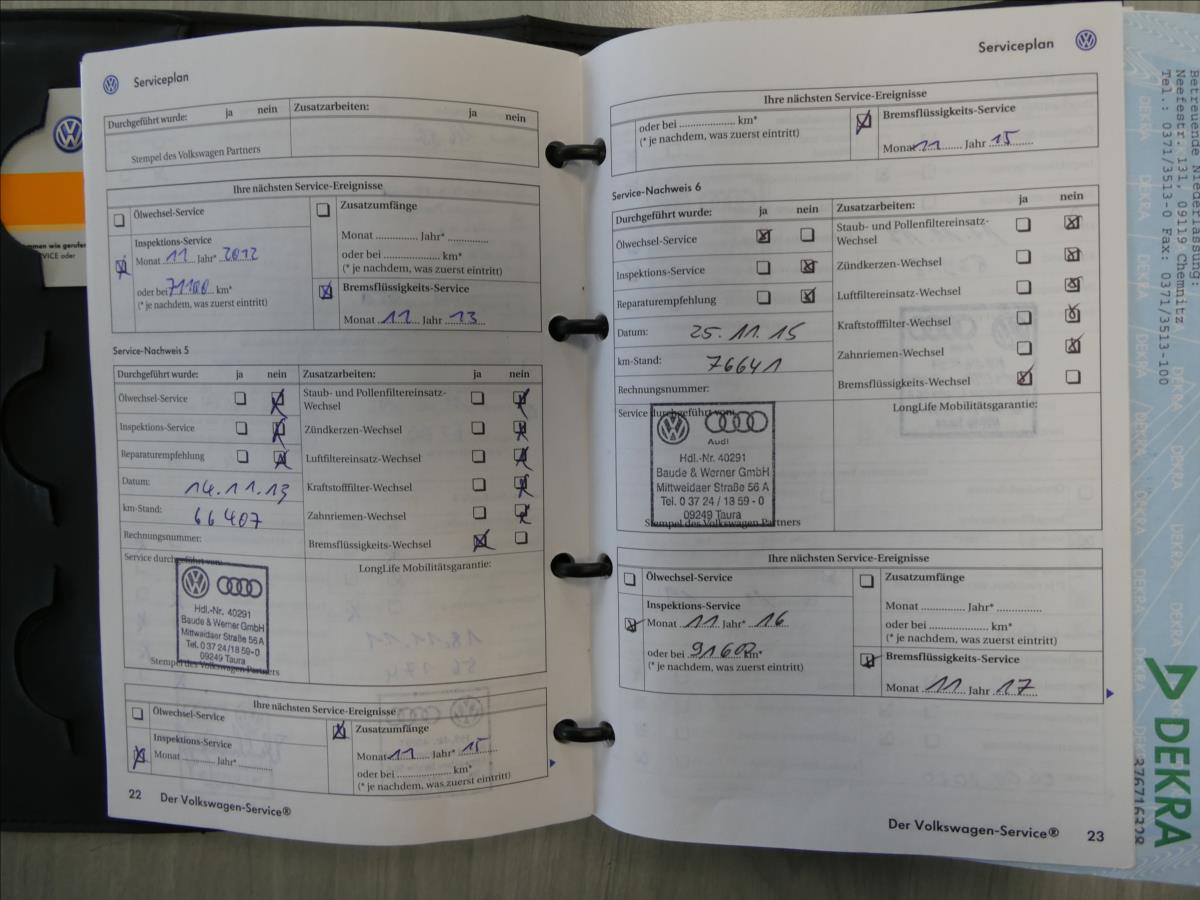 Serviceplan
Durchgeführt wurde: ja nein Zusatzarbeiten: ja nein
Stempel des Volkswagen Partners
Ihre nächsten Service-Ereignisse
Ölwechsel-Service
Zusatzumfänge
Inspektions-Service
Monat 11 Jahr* 2012
Monat ............. Jahr* .............
oder bei 71100 km*
(* je nachdem, was zuerst eintritt)
oder bei .................... km*
(* je nachdem, was zuerst eintritt)
Bremsflüssigkeits-Service
Monat 11 Jahr 13
Service-Nachweis 5
Durchgeführt wurde: ja nein Zusatzarbeiten: ja nein
Ölwechsel-Service
Staub- und Pollenfiltereinsatz-
Wechsel
Inspektions-Service
Zündkerzen-Wechsel
Reparaturempfehlung
Luftfiltereinsatz-Wechsel
Datum: 14.11.13
Kraftstofffilter-Wechsel
km-Stand: 66407
Zahnriemen-Wechsel
Rechnungsnummer:
Bremsflüssigkeits-Wechsel
Service durchgeführt von:
LongLife Mobilitätsgarantie:
Hdl.-Nr. 40291
Baude & Werner GmbH
Mittweidaer Straße 56 A
Tel. 0 37 24/18 59-0
09249 Taura
Stempel des Volkswagen Partners
Ihre nächsten Service-Ereignisse
Ölwechsel-Service
Zusatzumfänge
Inspektions-Service
Monat ............. Jahr* .............
Monat 11 Jahr* 15
oder bei .................... km*
(* je nachdem, was zuerst eintritt)
22 Der Volkswagen-Service®
Serviceplan
Ihre nächsten Service-Ereignisse
oder bei .................... km*
(* je nachdem, was zuerst eintritt)
Bremsflüssigkeits-Service
Monat 11 Jahr 15
Service-Nachweis 6
Durchgeführt wurde: ja nein Zusatzarbeiten: ja nein
Ölwechsel-Service
Staub- und Pollenfiltereinsatz-
Wechsel
Inspektions-Service
Zündkerzen-Wechsel
Reparaturempfehlung
Luftfiltereinsatz-Wechsel
Datum: 25.11.15
Kraftstofffilter-Wechsel
km-Stand: 76641
Zahnriemen-Wechsel
Rechnungsnummer:
Bremsflüssigkeits-Wechsel
Service durchgeführt von:
LongLife Mobilitätsgarantie:
Audi
Hdl.-Nr. 40291
Baude & Werner GmbH
Mittweidaer Straße 56 A
Tel. 0 37 24 / 18 59 - 0
09249 Taura
Stempel des Volkswagen Partners
Ihre nächsten Service-Ereignisse
Ölwechsel-Service
Zusatzumfänge
Inspektions-Service
Monat 11 Jahr* 16
Monat ............. Jahr* .............
oder bei .................... km*
(* je nachdem, was zuerst eintritt)
oder bei km*
(* je nachdem, was zuerst eintritt)
Bremsflüssigkeits-Service
Monat 11 Jahr 17
Der Volkswagen-Service® 23
Neefestr. 131, 09119 Chemnitz
Tel.: 0371/3513-0 Fax: 0371/3513-100
DEKRA